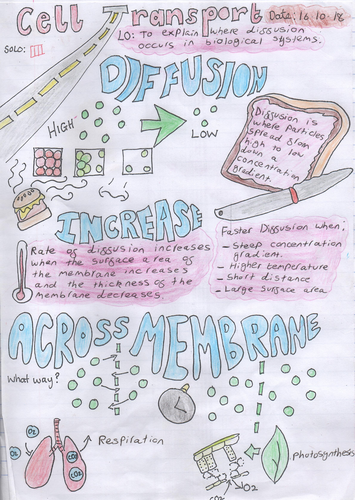 Cell Transport
Date: 16.10.18
SOLO:
LO: To explain where diffusion
occurs in biological systems.
DIFFUSION
HIGH
LOW
Diffusion is
where particles
spread from
high to low
down a
concentration
gradient.
INCREASE
Rate of diffusion increases
when the surface area of
the membrane increases
and the thickness of the
membrane decreases.
Faster Diffusion when.
- Steep concentration
gradient.
- Higher temperature
- Short distance
- Large surface area
ACROSS MEMBRANE
What way?
O2
CO2
O2
CO2
Respiration
photosynthesis
O2
CO2